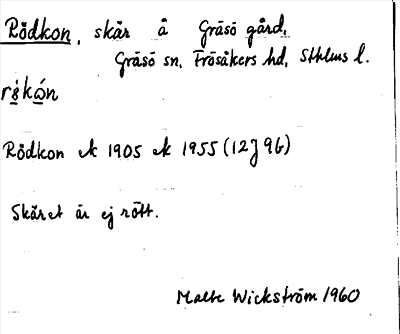 Rödkon, skär å Gräsö gård,
Gräsö sn, Frösåkers hd, Sthlms l.
rö̀kón
Rödkon ek 1905 ek 1955 (12J 96)
Skäret är ej rött.
Malte Wickström 1960